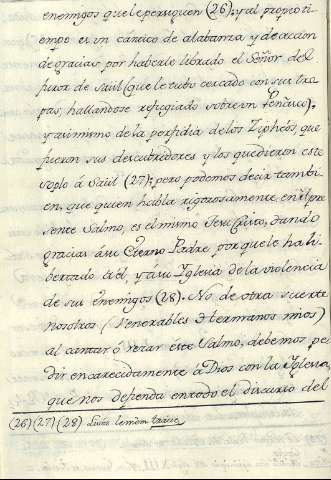 enemigos que le persiguen (26); y al proprio ti-
empo es un cantico de alabanza y de accion
de gracias por haberle librado el Señor del
furor de Saul (que le tubo cercado con sus tro-
pas, hallandose refugiado sobre un Peñasco),
y asimismo de la perfidia de los Zipheos, que
fueron sus descubridores y los que dieron este
soplo á Saül (27); pero podemos decir tambi-
en, que quien habla rigorosamente en el pre-
sente Salmo, es el mismo Jesu Christo, dando
gracias á su Eterno Padre porque le ha li-
bertado á él, y á su Yglesia de la violencia
de sus enemigos (28). No de otra suerte
nosotros (Venerables Hermanos mios)
al cantar ó rezar este Salmo, debemos pe-
dir encarecidamente á Dios con la Yglesia,
que nos defienda en todo el discurso del
(26) (27) (28)